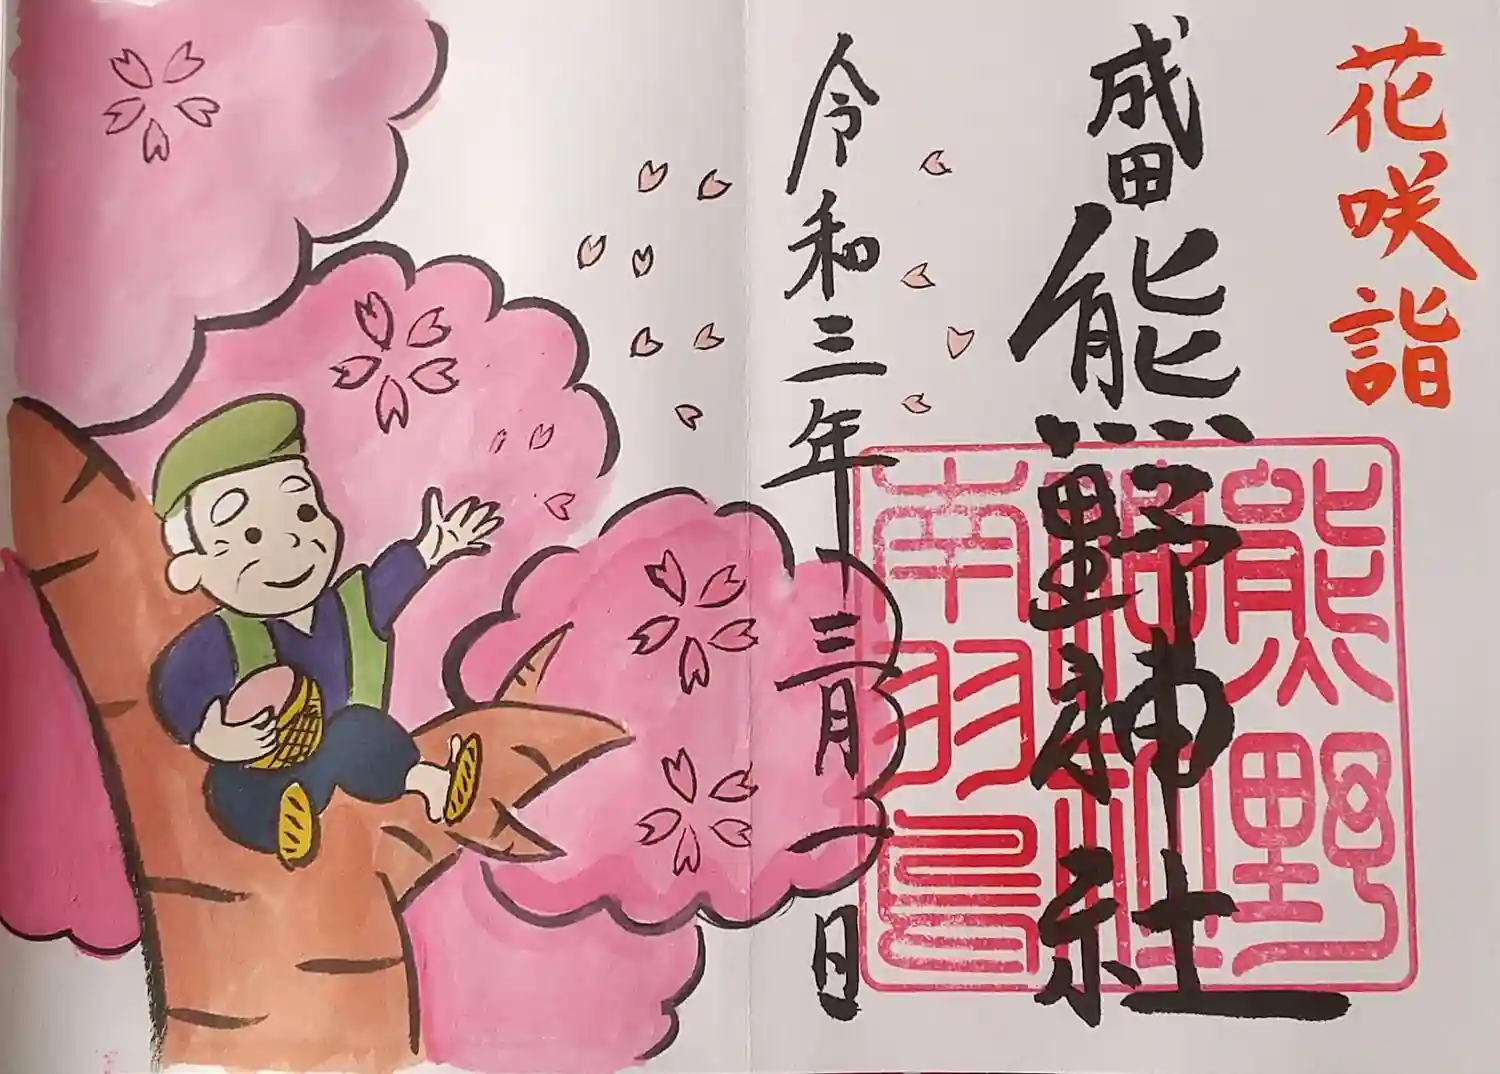 花咲詣
成田熊野神社
令和三年三月一日
熊野
南羽鳥